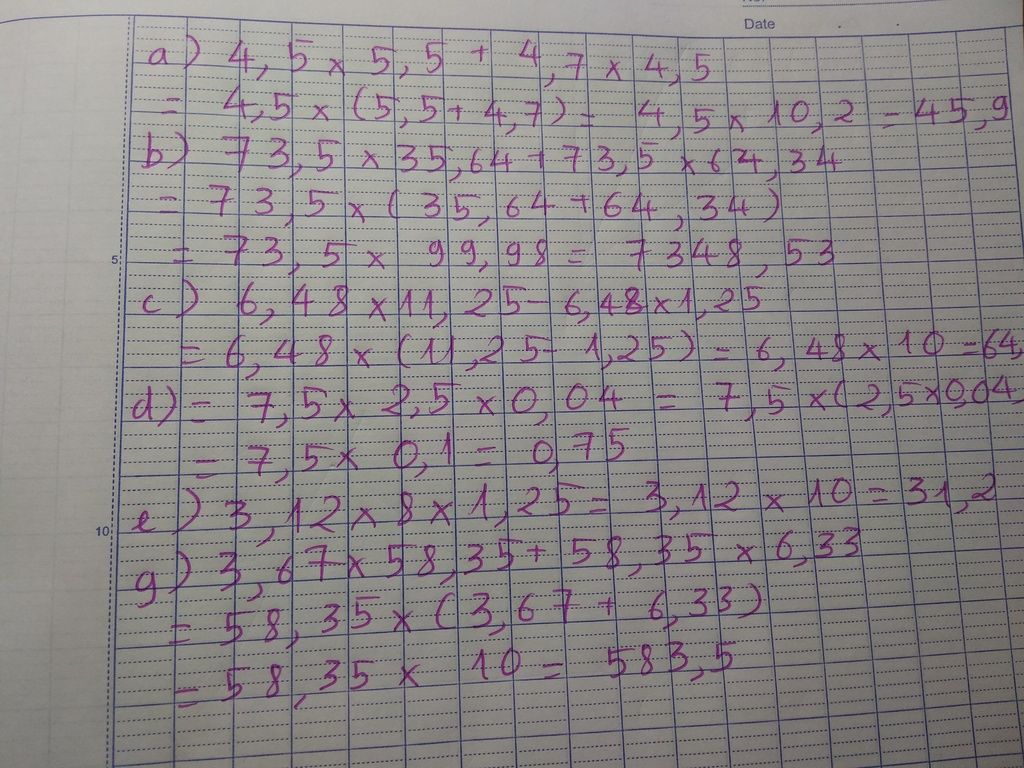 Date
a) 4,5 x 5,5 + 4,7 x 4,5
= 4,5 x (5,5 + 4,7) = 4,5 x 10,2 = 45,9
b) 73,5 x 35,64 + 73,5 x 64,34
= 73,5 x (35,64 + 64,34)
5
= 73,5 x 99,98 = 7348,53
c) 6,48 x 11,25 - 6,48 x 1,25
= 6,48 x (11,25 - 1,25) = 6,48 x 10 = 64,
d) = 7,5 x 2,5 x 0,04 = 7,5 x (2,5 x 0,04
= 7,5 x 0,1 = 0,75
10
e) 3,12 x 8 x 1,25 = 3,12 x 10 = 31,2
g) 3,67 x 58,35 + 58,35 x 6,33
= 58,35 x (3,67 + 6,33)
= 58,35 x 10 = 583,5